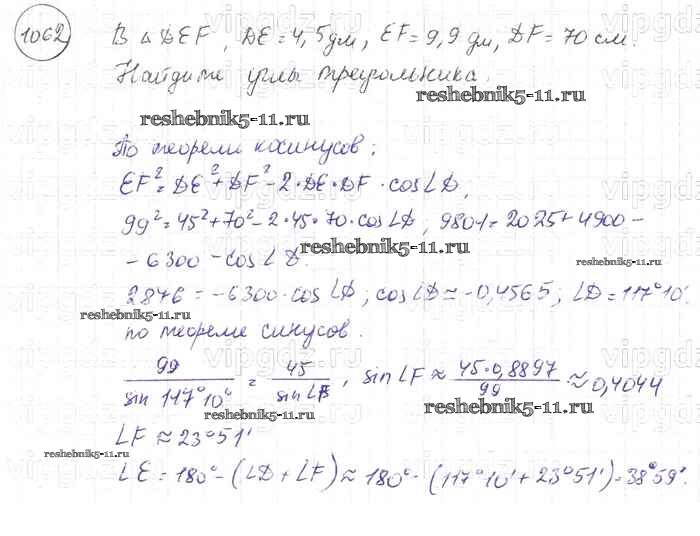 1062 В △ DEF, DE = 4,5 дм, EF = 9,9 дм, DF = 70 см.
Найдите углы треугольника.
reshebnik5-11.ru
reshebnik5-11.ru
По теореме косинусов:
EF² = DE² + DF² - 2·DE·DF·cos∠D,
99² = 45² + 70² - 2·45·70·cos∠D; 9801 = 2025 + 4900 -
reshebnik5-11.ru
- 6300 - cos∠D.
reshebnik5-11.ru
2876 = -6300·cos∠D; cos∠D ≈ -0,4565; ∠D = 117°10'
reshebnik5-11.ru
по теореме синусов.
99/sin 117°10' = 45/sin∠F, sin∠F ≈ 45·0,8897/99 ≈ 0,4044
reshebnik5-11.ru
reshebnik5-11.ru
∠F ≈ 23°51'
reshebnik5-11.ru
∠E = 180° - (∠D + ∠F) ≈ 180° - (117°10' + 23°51') = 38°59'.